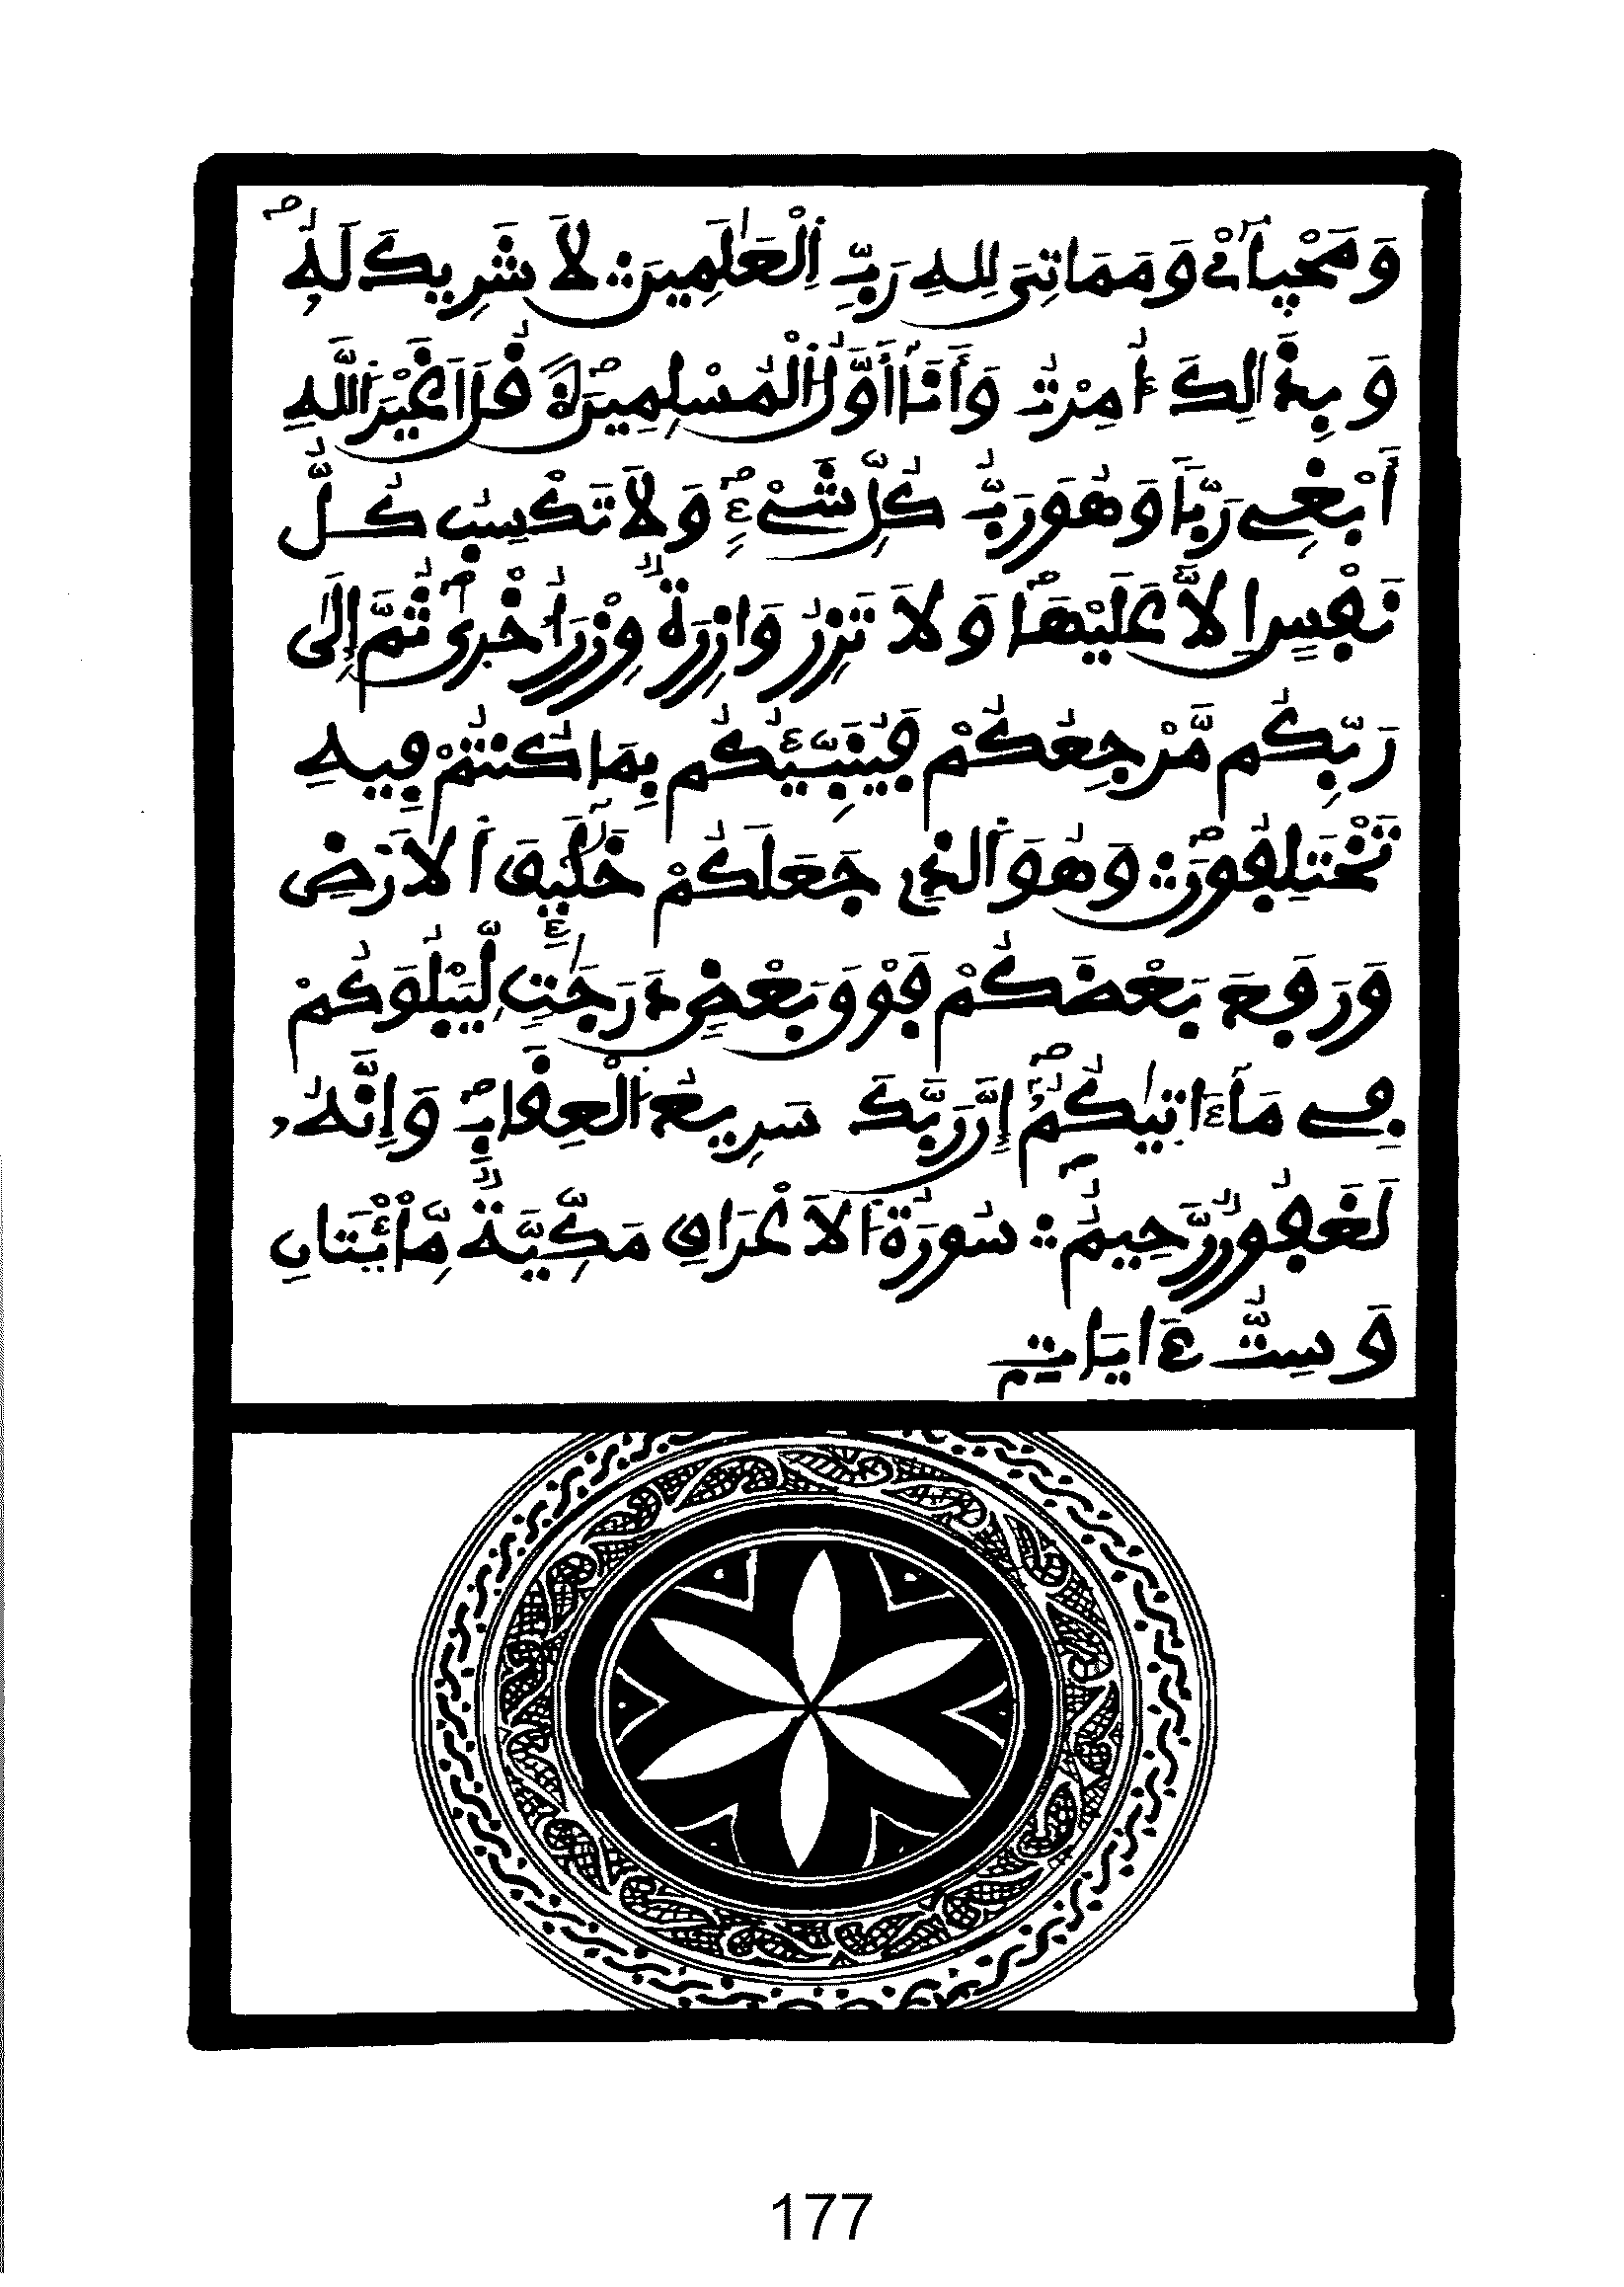 وَمَحْيَآےْ وَمَمَاتِىَ لِلهِ رَبِّ اِ۬لْعَٰلَمِينَ لَا شَرِيكَ لَهُۥ
وَبِذَٰلِكَ أُمِرْتُ وَأَنَآ أَوَّلُ اُ۬لْمُسْلِمِينَ قُلَ اَغَيْرَ اَ۬للَّهِ
أَبْغِے رَبّاٗ وَهُوَ رَبُّ كُلِّ شَےْءٖ وَلَا تَكْسِبُ كُلُّ
نَفْسٍ اِلَّا عَلَيْهَا وَلَا تَزِرُ وَازِرَةٞ وِزْرَ أُخْر۪ىٰ ثُمَّ إِلَىٰ
رَبِّكُم مَّرْجِعُكُمْ فَيُنَبِّئُكُم بِمَا كُنتُمْ فِيهِ
تَخْتَلِفُونَ وَهُوَ اَ۬لذِے جَعَلَكُمْ خَلَٰٓئِفَ اَ۬لَارْضِ
وَرَفَعَ بَعْضَكُمْ فَوْقَ بَعْضٖ دَرَجَٰتٖ لِّيَبْلُوَكُمْ
فِے مَآ ءَاتٰيكُمُۥٓ إِنَّ رَبَّكَ سَرِيعُ اُ۬لْعِقَابِ وَإِنَّهُۥ
لَغَفُورٞ رَّحِيمٞ سُورَةُ اُ۬لَاعْرَافِ مَكِّيَّةٞ مِّاْئَتَانِ
وَسِتُّ ءَايَاتٍ
177